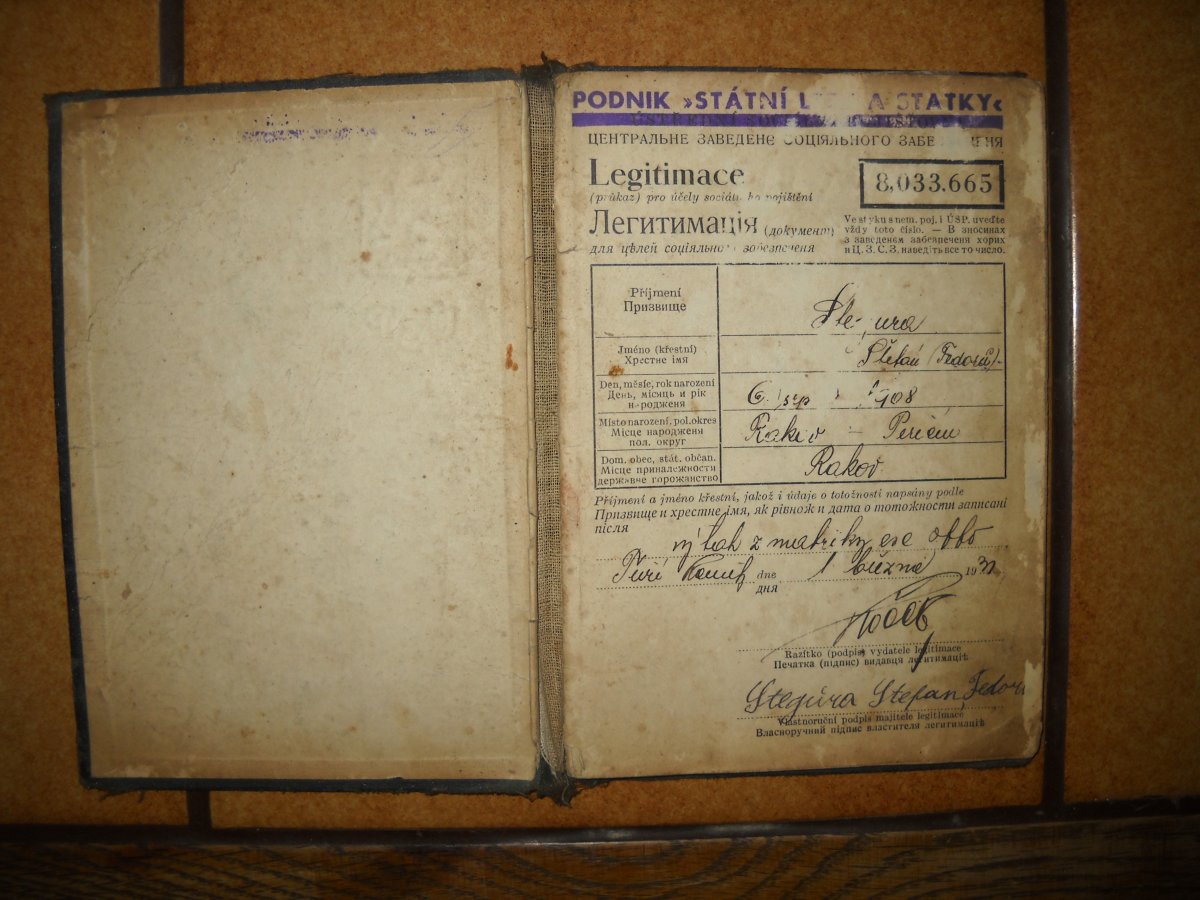 PODNIK »STÁTNÍ L A STATKY«
ÚSTŘEDNÍ SOCIÁLNÍ
ЦЕНТРАЛЬНЕ ЗАВЕДЕНЕ СОЦІЯЛЬНОГО ЗАБЕ
Legitimace
8,033.665
(průkaz) pro účely sociál. ho pojištění
Легитимація (документ)
для цѣлей соціяльно забезпеченя
Ve styku s nem. poj. i ÚSP. uveďte
vždy toto číslo. — В зносинах
з заведенем забезпеченя хорих
и Ц. З. С. З. наведіть все то число.
Příjmení
Призвище
Ste ura
Jméno (křestní)
Хрестне імя
Štefan (Fedorů)
Den, měsíc, rok narození
День, місяць и рік
народженя
6. srp 1908
Místo narození, pol. okres
Місце народженя
пол. округ
Rakov – Perečín
Dom. obec, stát. občan.
Місце приналежности
державне горожанство
Rakov
Příjmení a jméno křestní, jakož i údaje o totožnosti napsány podle
Призвище и хрестне імя, як рівнож и дата о тотожности записані
після
výtah z matriky
Turi dne 1 března 193
дня
Razítko (podpis) vydatele legitimace
Печатка (підпис) видавця легитимаціѣ
Stegura Stefan Fedor
Vlastnoruční podpis majitele legitimace
Власноручний підпис властителя легитимаціѣ